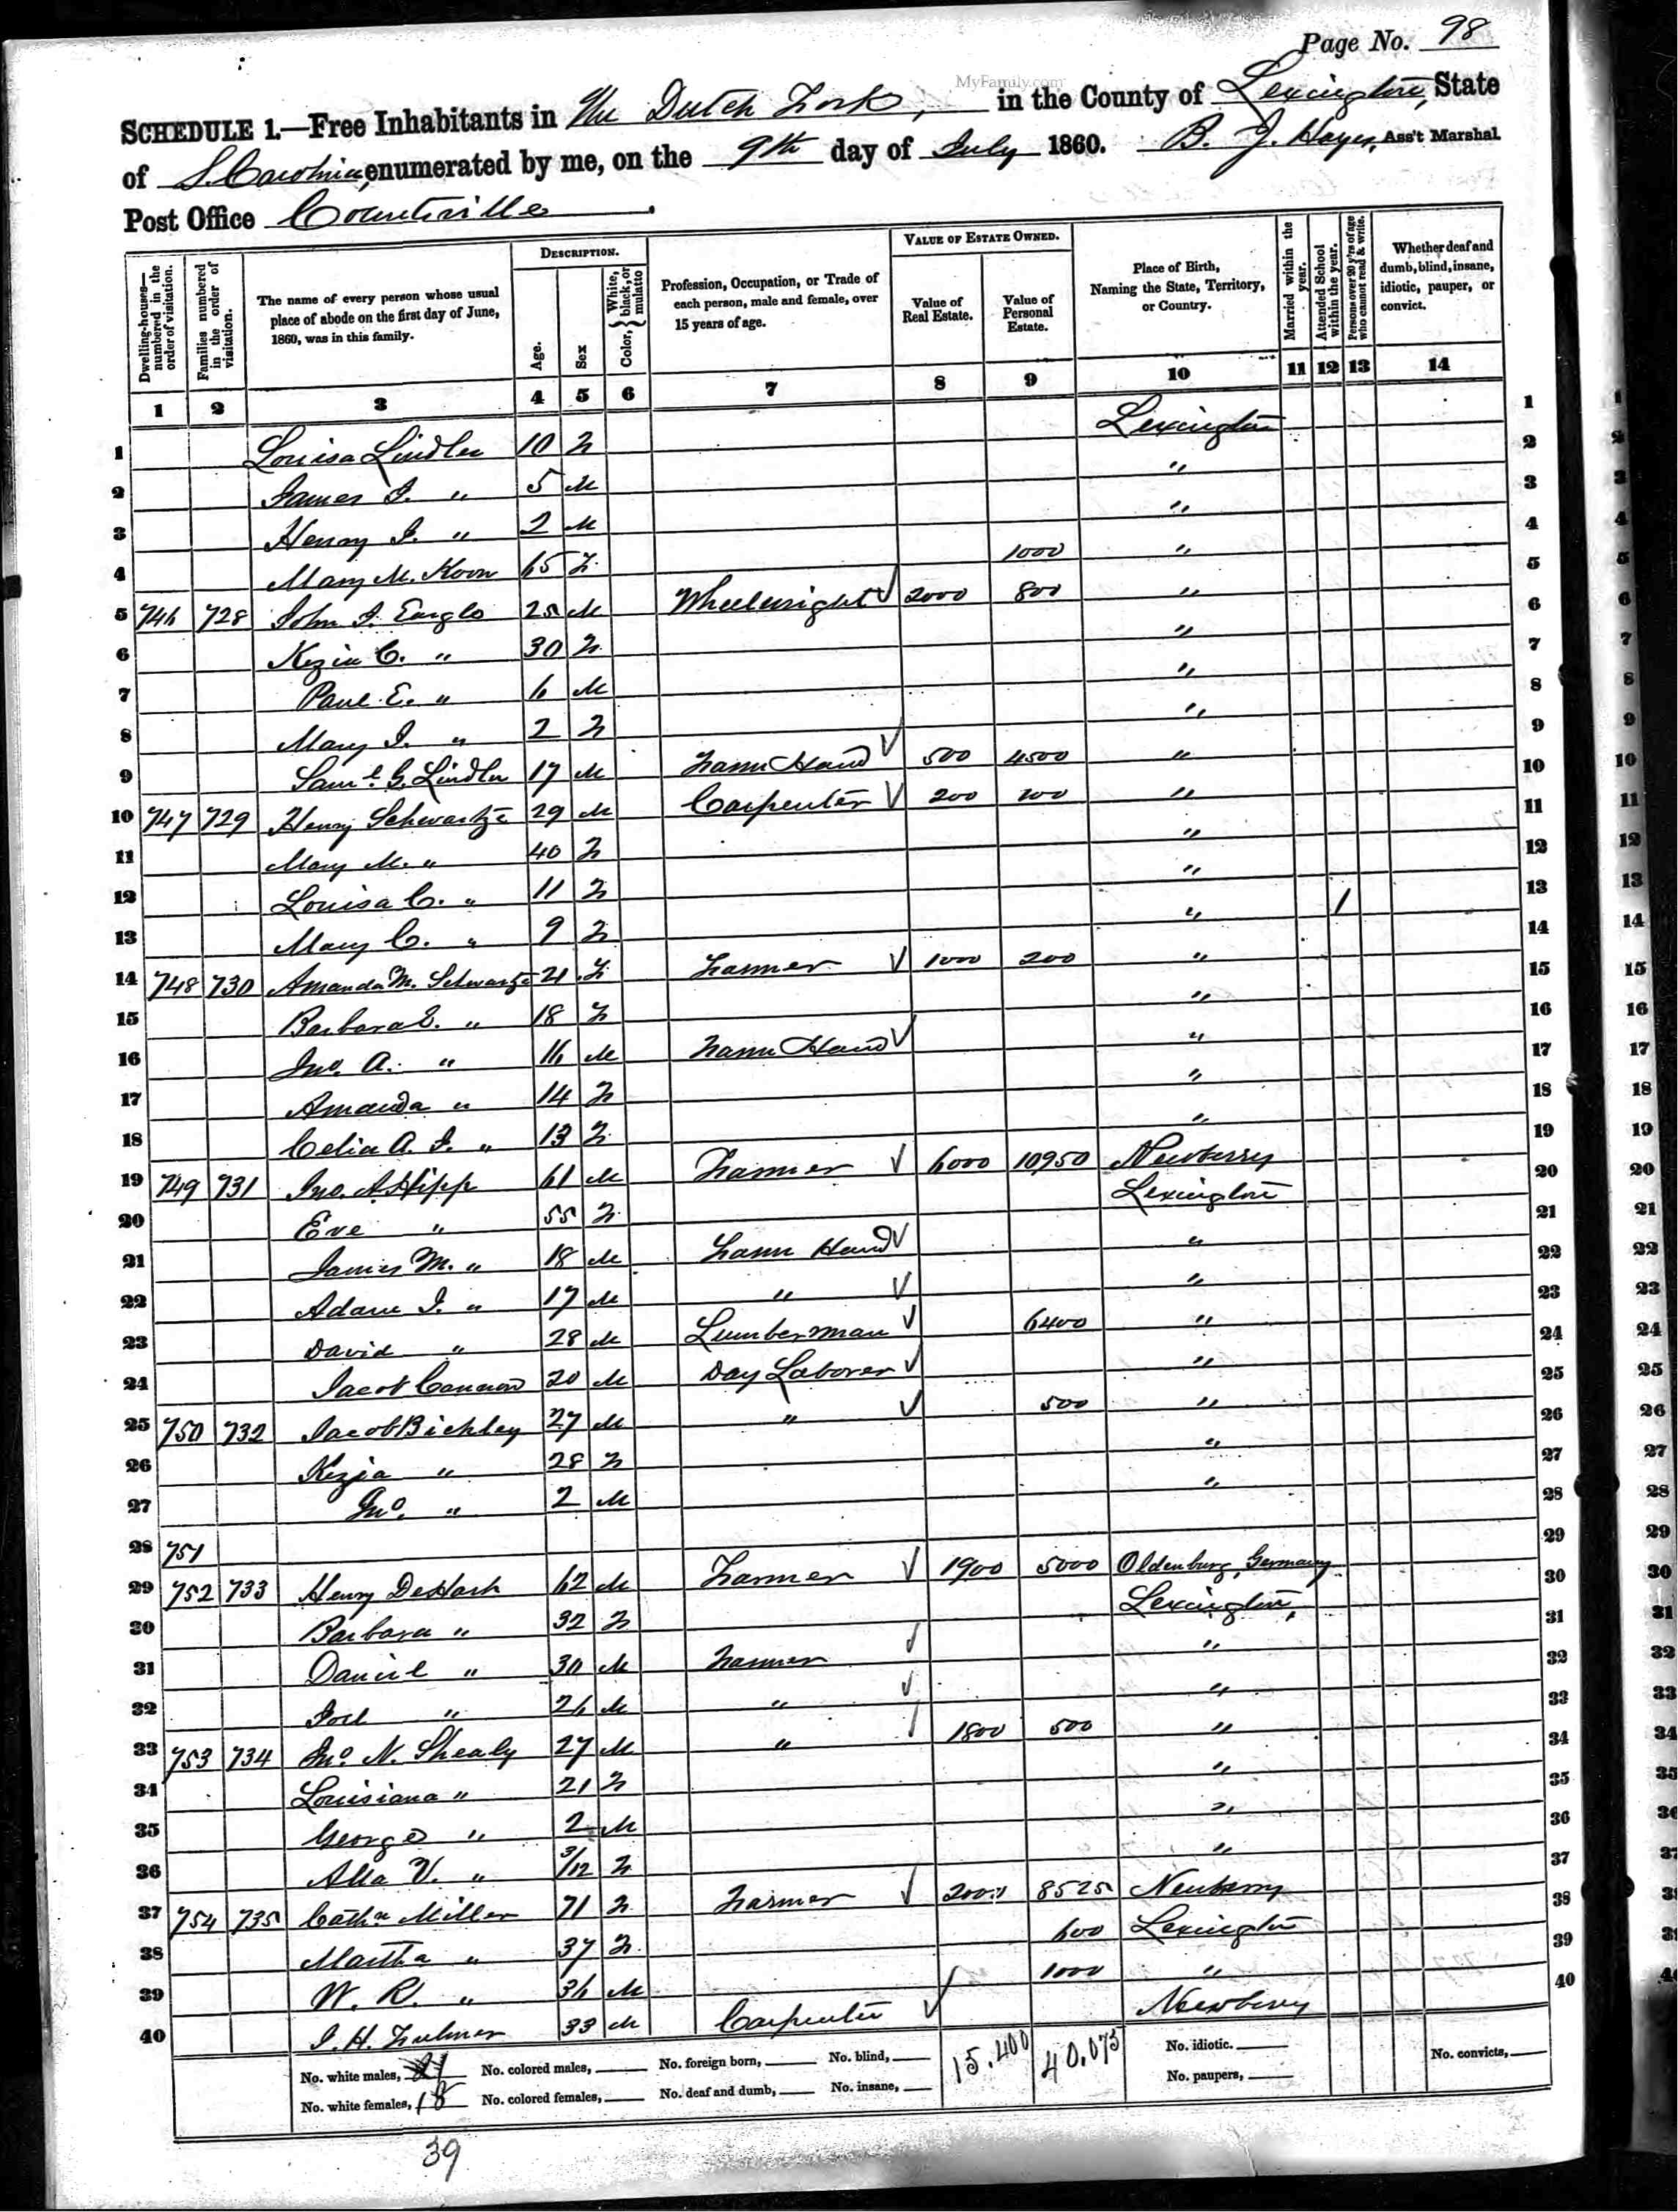 Page No. 98
MyFamily.com
SCHEDULE 1.—Free Inhabitants in The Dutch Fork, in the County of Lexington, State
of S. Carolina, enumerated by me, on the 9th day of July 1860. B. J. Hayes, Ass't Marshal
Post Office Countsville.
Dwelling-houses—numbered in the order of visitation.
Families numbered in the order of visitation.
The name of every person whose usual place of abode on the first day of June, 1860, was in this family.
DESCRIPTION.
Age.
Sex
Color, { White, black, or mulatto
Profession, Occupation, or Trade of each person, male and female, over 15 years of age.
VALUE OF ESTATE OWNED.
Value of Real Estate.
Value of Personal Estate.
Place of Birth, Naming the State, Territory, or Country.
Married within the year.
Attended School within the year.
Persons over 20 y'rs of age who cannot read & write.
Whether deaf and dumb, blind, insane, idiotic, pauper, or convict.
1 2 3 4 5 6 7 8 9 10 11 12 13 14
1 Louisa Lindler 10 F Lexington 1
2 James I. " 5 M " 2
3 Henry I. " 2 M " 3
4 Mary M. Koon 65 F 1000 " 4
5 746 728 John I. Eargle 25 M Wheelwright 2000 800 " 5
6 Kezia C. " 30 F " 6
7 Paul E. " 6 M " 7
8 Mary I. " 2 F " 8
9 Saml. G. Lindler 17 M Farm Hand 500 4500 " 9
10 747 729 Henry Schwartz 29 M Carpenter 200 100 " 10
11 Mary M. " 40 F " 11
12 Louisa C. " 11 F " 12
13 Mary C. " 9 F " 1 13
14 748 730 Amanda M. Schwartz 21 F Farmer 1000 200 " 14
15 Barbara E. " 18 F " 15
16 Jno. A. " 16 M Farm Hand " 16
17 Amanda " 14 F " 17
18 Celia A. I. " 13 F " 18
19 749 731 Jno. A Hipp 61 M Farmer 6000 10950 Newberry 19
20 Eve " 55 F Lexington 20
21 James M. " 18 M Farm Hand " 21
22 Adam I. " 17 M " " 22
23 David " 28 M Lumberman 6400 " 23
24 Jacob Cannon 20 M Day Laborer " 24
25 750 732 Jacob Bickley 27 M " 500 " 25
26 Kezia " 28 F " 26
27 Jno. " 2 M " 27
28 751 28
29 752 733 Henry DeHart 62 M Farmer 1900 5000 Oldenburg, Germany 29
30 Barbara " 32 F Lexington, 30
31 Daniel " 30 M Farmer " 31
32 Joel " 26 M " " 32
33 753 734 Jno. N. Shealy 27 M " 1800 500 " 33
34 Louisiana " 21 F " 34
35 George " 2 M " 35
36 Alla V. " 3/12 F " 36
37 754 735 Cathn Miller 71 F Farmer 2000 8525 Newberry 37
38 Martha " 37 F 600 Lexington 38
39 W. R. " 36 M 1000 " 39
40 J. H. Fulmer 33 M Carpenter Newberry 40
No. white males, 21 No. colored males, No. foreign born, No. blind, 15.400 40.075 No. idiotic. No. convicts,
No. white females, 18 No. colored females, No. deaf and dumb, No. insane, No. paupers,
39